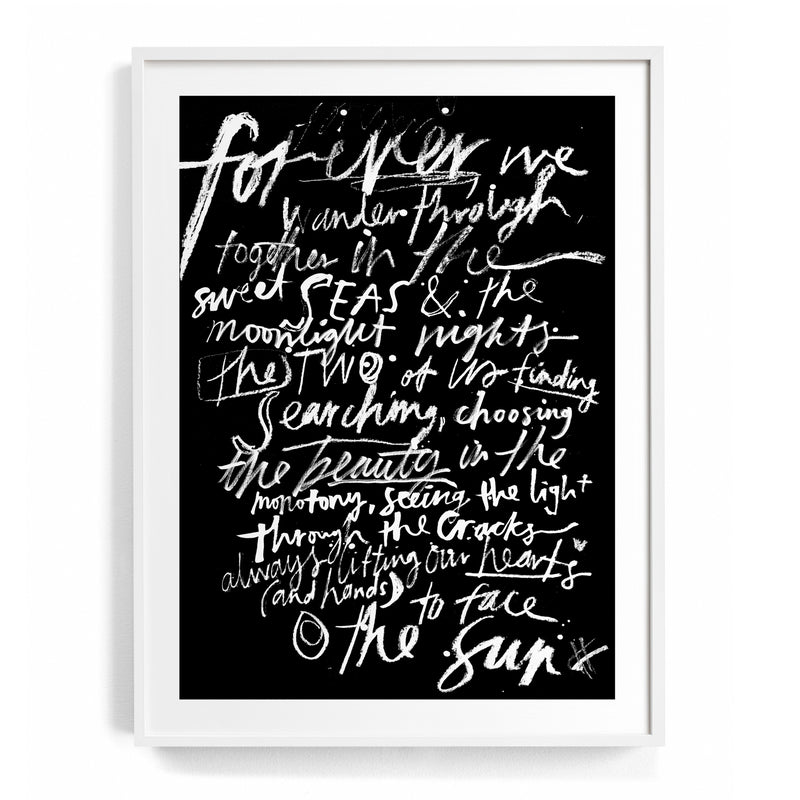 forever, we
wander through
together in the
sweet SEAS & the
moonlight nights
the TWO of us finding
Searching, choosing
the beauty in the
monotony, seeing the light
through the cracks
always lifting our hearts
(and hands) to face
the sun